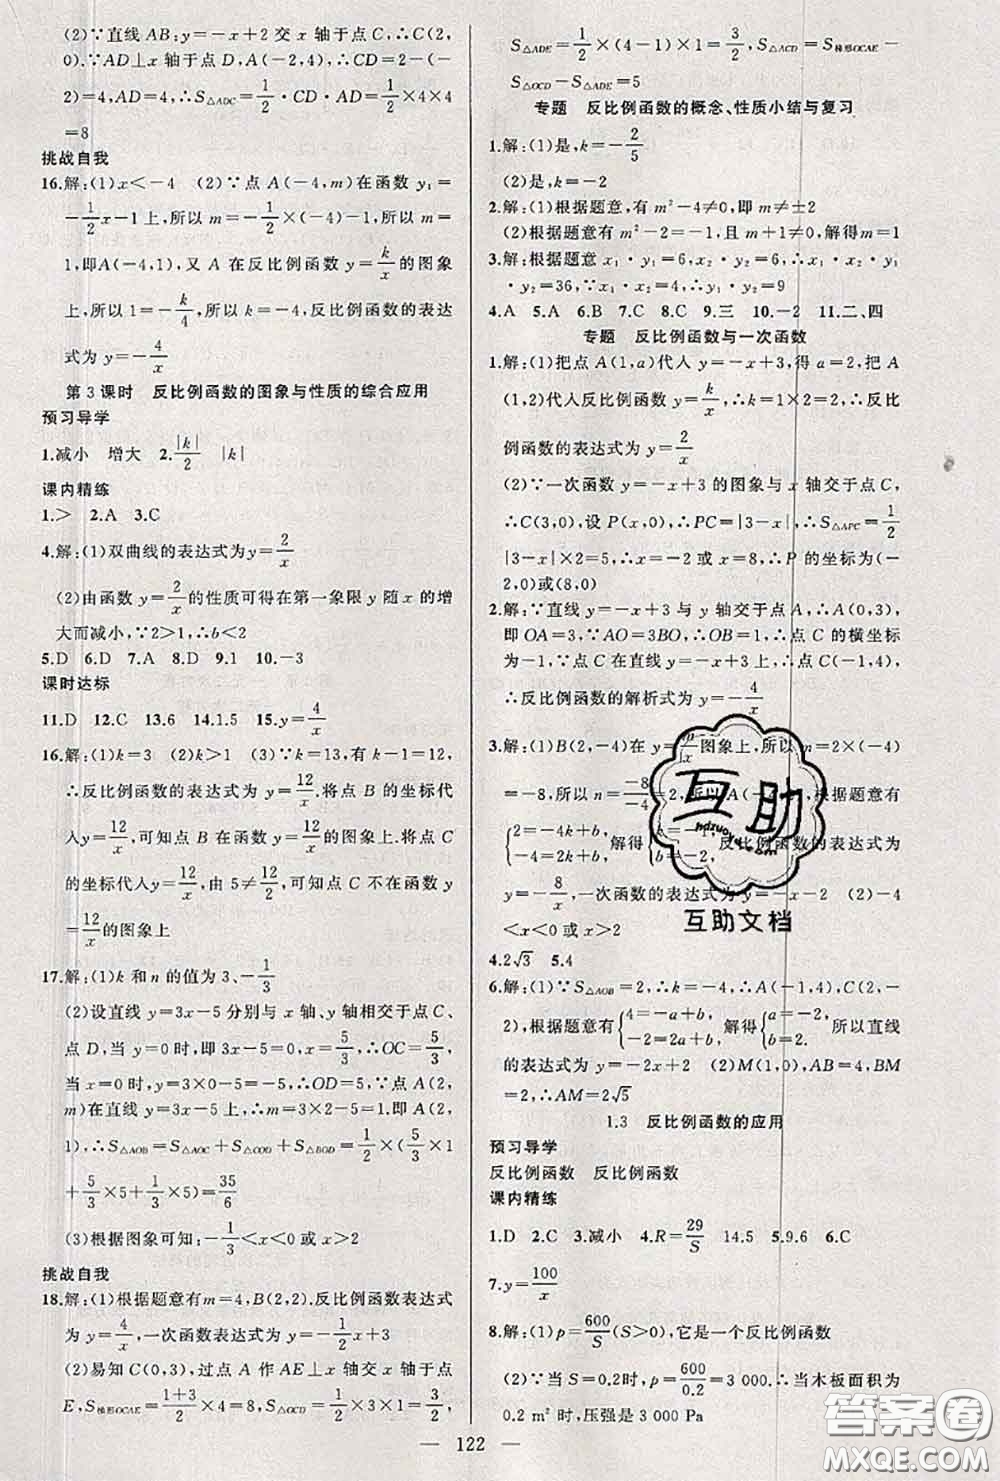 (2)∵直线 AB:y=-x+2 交 x 轴于点 C,∴C(2,
0).∵AD⊥x 轴于点 D,A(-2,4),∴CD=2-(-
2)=4,AD=4,∴S△ADC=1/2·CD·AD=1/2×4×4
=8
挑战自我
16.解:(1)x<-4 (2)∵点 A(-4,m)在函数 y₁=
-1/2x-1 上,所以 m=-1/2×(-4)-1,所以 m=
1,即A(-4,1),又 A 在反比例函数 y=k/x 的图象
上,所以 1=-k/4,所以 k=-4,反比例函数的表达
式为 y=-4/x
第 3 课时 反比例函数的图象与性质的综合应用
预习导学
1.减小 增大 2.|k|/2 |k|
课内精练
1.> 2.A 3.C
4.解:(1)双曲线的表达式为y=2/x
(2)由函数 y=2/x的性质可得在第一象限 y 随 x 的增
大而减小,∵2>1,∴b<2
5.D 6.D 7.A 8.D 9.1 10.-3
课时达标
11.D 12.C 13.6 14.1.5 15.y=4/x
16.解:(1)k=3 (2)k>1 (3)∵k=13,有 k-1=12,
∴反比例函数的表达式为 y=12/x.将点 B 的坐标代
入y=12/x,可知点 B 在函数 y=12/x的图象上,将点 C
的坐标代入y=12/x,由 5≠12/2,可知点 C 不在函数 y
=12/x的图象上
17.解:(1)k 和 n 的值为 3、-1/3
(2)设直线 y=3x-5 分别与 x 轴、y 轴相交于点 C、
点 D,当 y=0 时,即 3x-5=0,x=5/3,∴OC=5/3,
当 x=0 时,y=3×0-5=-5,∴OD=5;∵点 A(2,
m)在直线 y=3x-5 上,∴m=3×2-5=1.即 A(2,
1),∴S△AOB=S△AOC+S△COD+S△BOD=1/2×(5/3×1
+5/3×5+1/3×5)=35/6
(3)根据图象可知:-1/3<x<0 或 x>2
挑战自我
18.解:(1)根据题意有m=4,B(2,2).反比例函数表达式
为 y=4/x,一次函数表达式为 y=-1/2x+3
(2)易知 C(0,3),过点 A 作 AE⊥x 轴交 x 轴于点
E,S梯形OCAE=(1+3)/2×4=8,S△OCD=1/2×2×3=3,
S△ADE=1/2×(4-1)×1=3/2,S△ACD=S梯形OCAE-
S△OCD-S△ADE=5
专题 反比例函数的概念、性质小结与复习
1.解:(1)是,k=-2/5
(2)是,k=-2
2.解:(1)根据题意,有 m²-4≠0,即 m≠±2
(2)根据题意有 m²-2=-1,且 m+1≠0,解得m=1
3.解:根据题意 x₁·y₁=6,x₂·y₂=6,∴x₁·x₂·y₁
·y₂=36,∵x₁·x₂=4,∴y₁·y₂=9
4.A 5.A 6.B 7.C 8.C 9.三 10.-2 11.二、四
专题 反比例函数与一次函数
1.解:(1)把点 A(1,a)代入 y=-x+3,得 a=2,把 A
(1,2)代入反比例函数 y=k/x,∴k=1×2=2,∴反比
例函数的表达式为 y=2/x
(2)∵一次函数 y=-x+3 的图象与 x 轴交于点 C,
∴C(3,0),设 P(x,0),∴PC=|3-x|,∴S△APC=1/2
|3-x|×2=5,∴x=-2 或 x=8,∴P 的坐标为(-
2,0)或(8,0)
2.解:∵直线 y=-x+3 与 y 轴交于点 A,∴A(0,3),
即 OA=3,∵AO=3BO,∴OB=1,∴点 C 的横坐标
为-1,∵点 C 在直线 y=-x+3 上,∴点 C(-1,4),
∴反比例函数的解析式为 y=-4/x
3.解:(1)B(2,-4)在 y=m/x图象上,所以 m=2×(-4)
=-8,所以 n=-8/-4=2,所以A(-4,2),根据题意有
{2=-4k+b, -4=2k+b, 解得{k=-1, b=-2, 反比例函数的表达式为
y=-8/x,一次函数的表达式为 y=-x-2 (2)-4
<x<0 或 x>2
4.2√3 5.4
6.解:(1)∵S△AOB=2,∴k=-4,∴A(-1,4),C(2,-
2),根据题意有{4=-a+b, -2=2a+b, 解得{a=-2, b=2. 所以直线
的表达式为 y=-2x+2 (2)M(1,0),AB=4,BM
=2,∴AM=2√5
1.3 反比例函数的应用
预习导学
反比例函数 反比例函数
课内精练
1.D 2.C 3.减小 4.R=29/S 14.5 5.9.6 6.C
7.y=100/x
8.解:(1)p=600/S(S>0),它是一个反比例函数
(2)∵当 S=0.2时,p=600/0.2=3 000,∴当木板面积为
0.2 m²时,压强是 3 000 Pa
— 122 —
互助
hdzuoye.com
互助文档
答案圈
MXQE.COM